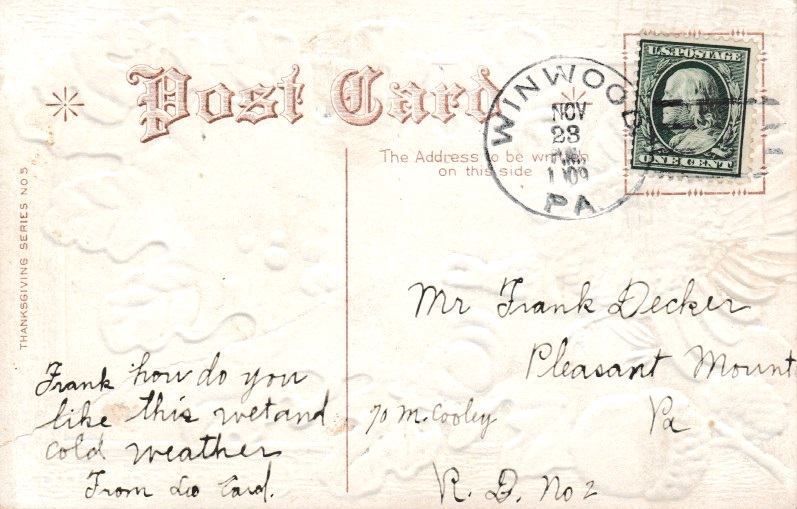 Post Card
U.S. POSTAGE
ONE CENT
WINWOOD
NOV
23
1909
PA.
The Address to be written
on this side
THANKSGIVING SERIES NO 5
Mr Frank Decker
Pleasant Mount
Pa
℅ M. Cooley
R. D. No 2
Frank how do you
like this wet and
cold weather
From Leo Card.